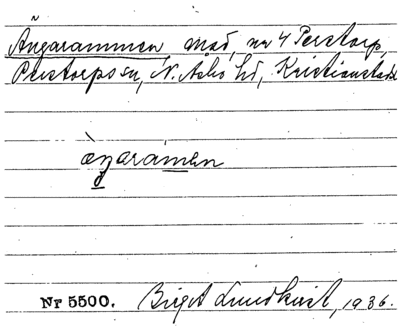 Ängarammen, mad, no 4 Perstorp,
Perstorps sn, N. Åsbo hd, Kristianstads
Nr 5500. Birgit Lundkvist, 1936.